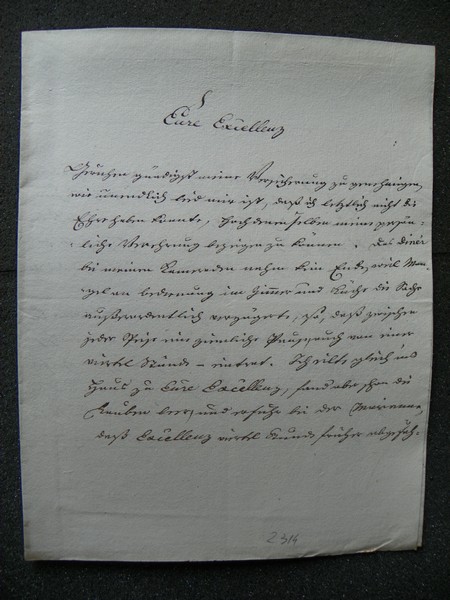 Eure Excellenz
Geruhen gnädigst meine Versicherung zu genehmigen,
wie unendlich leid mir ist, daß ich letztlich nicht die
Ehre haben konnte, Hochdenenselben meine persön-
liche Verehrung bezeigen zu können. Das diner
bei meinem Kameraden nahm kein Ende, weil Man-
gel an bedienung im Zimmer und Küche die Sache
außerordentlich verzögerte, so, daß zwischen
jeder Speise eine ziemliche Pause von einer
viertel Stunde – eintrat. Ich eilte gleich ins
Haus zu Eure Excellenz, fand aber schon die
leer, und erfuhr bei der
daß Excellenz viertel Stunde früher abgefah-
2314